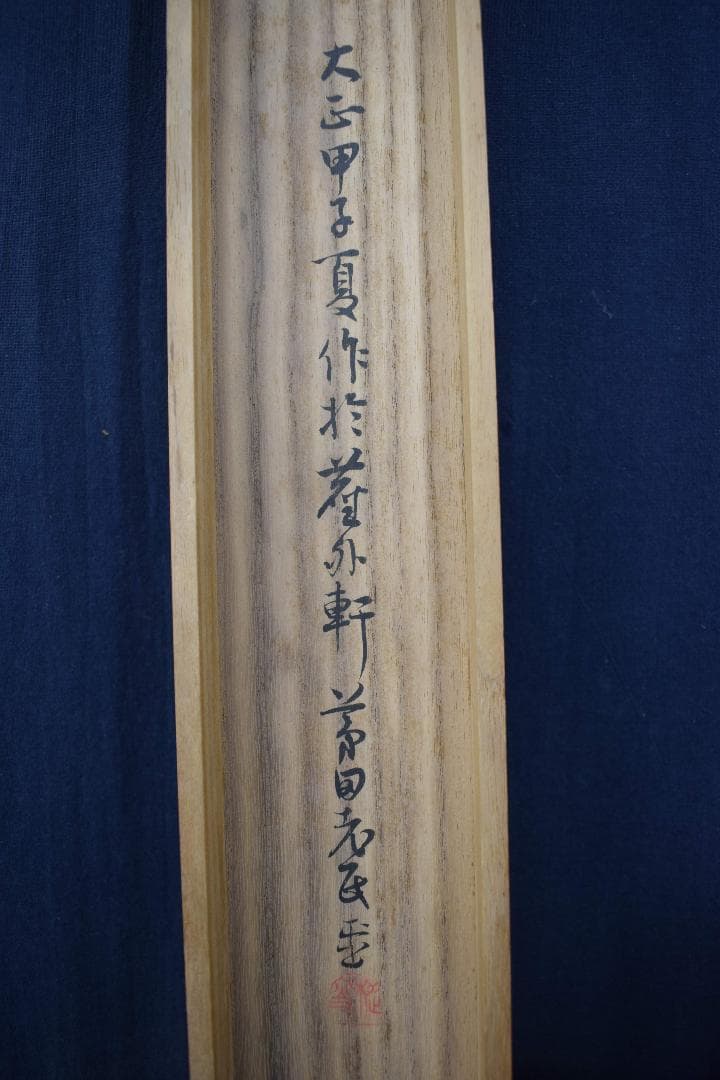 大正甲子夏作於外軒 茅田老民